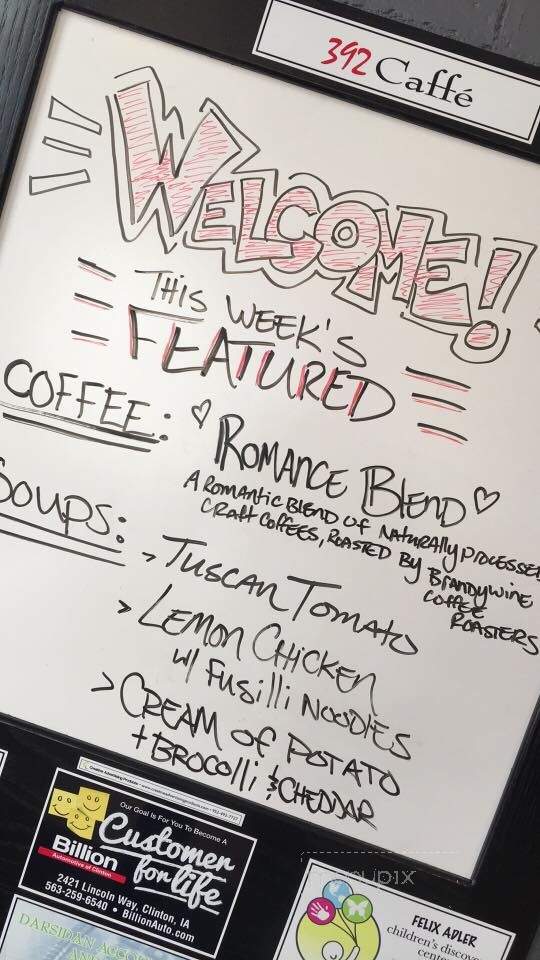 392 Caffé
WELCOME!
THIS WEEK'S
FEATURED
COFFEE: ROMANCE BLEND
A ROMANTIC BLEND OF NATURALLY PROCESSED
CRAFT COFFEES, ROASTED BY BRANDYWINE
COFFEE
ROASTERS
SOUPS: > TUSCAN TOMATO
> LEMON CHICKEN
w/ FUSILLI NOODLES
> CREAM OF POTATO
+ BROCOLLI & CHEDDAR
Our Goal Is For You To Become A
Customer
for life
Billion
Automotive of Clinton
2421 Lincoln Way, Clinton, IA
563-259-6540 • BillionAuto.com
FELIX ADLER
children's discov
cent
DARSIDAN